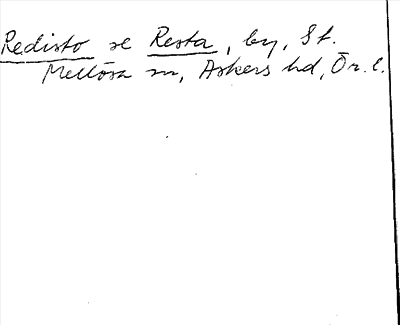 Redisto se Resta, by, St.
Mellösa sn, Askers hd, Ör. l.